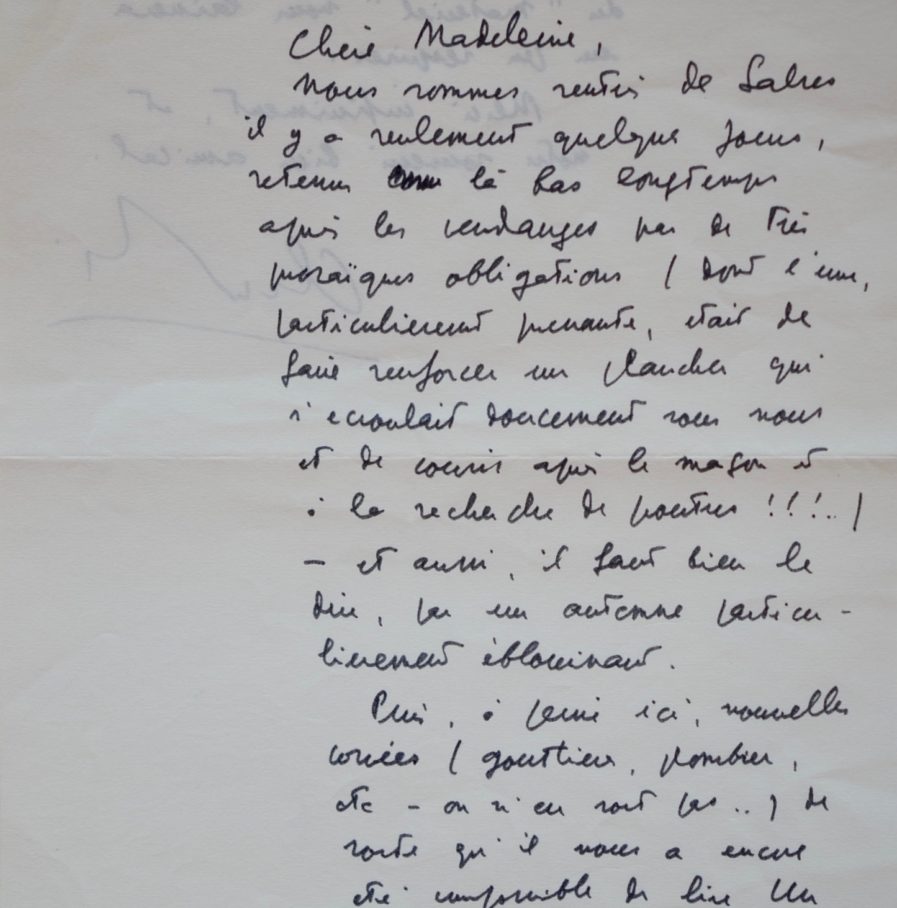 Chère Madeleine,
nous sommes rentrés de Salses
il y a seulement quelque jours,
retenus là bas longtemps
après les vendanges par de très
prosaïques obligations (dont l'une,
particulièrement prenante, était de
faire renforcer un plancher qui
s'écroulait doucement sous nous
et de courir après le maçon et
à la recherche de poutres !!!..)
— et aussi, il faut bien le
dire, par un automne particu-
lièrement éblouissant.
Puis, à peine ici, nouvelles
corvées (gouttière, plombier,
etc - on n'en sort pas..) de
sorte qu'il nous a encore
été impossible de lire Un